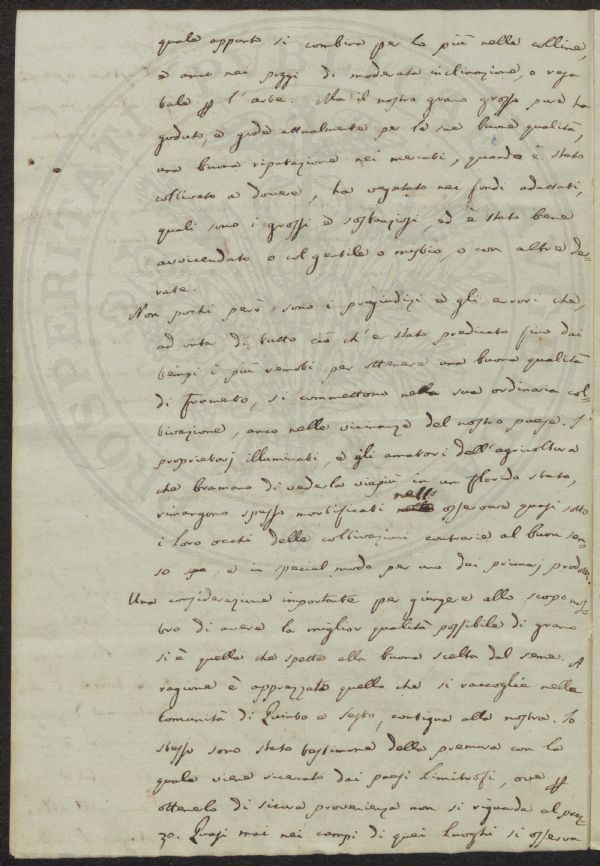 quale appunto si combina per lo più nelle colline,
e anco nei poggi di moderata inclinazione, o resa
tale p l'arte. Ma il nostro grano grosso pure ha
goduto, e gode attualmente per le sue buone qualità,
una buona riputazione nei mercati, quando è stato
coltivato a dovere, ha vegetato nei fondi adattati,
quali sono i grossi e sostanziosi, ed è stato bene
avvicendato o col gentile o mistio, o con altre der-
rate.
Non pochi però sono i pregiudizi e gli errori che,
ad onta di tutto ciò ch'è stato predicato fino dai
tempi i più remoti per ottenere una buona qualità
di frumento, si commettono nella sua ordinaria col-
tivazione, anco nelle vicinanze del nostro paese. I
proprietarj illuminati, e gli amatori dell'agricoltura
che bramano di vederla viepiù in un florido stato,
rimangono spesso mortificati nello osservare quasi sotto
i loro occhi delle coltivazioni contrarie al buon sen-
so, e in special modo per uno dei primarj prodotti.
Una considerazione importante per giungere allo scopo nos-
tro di avere la miglior qualità possibile di grano
si è quella che spetta alla buona scelta del seme. A
ragione è apprezzato quello che si raccoglie nelle
Comunità di Quinto e Sesto, contigua alla nostra. Io
stesso sono stato testimone della premura con la
quale viene ricercato dai paesi limitrofi, ove p
ottenerlo di sicura provenienza non si riguarda al prez-
zo. Quasi mai nei campi di quei luoghi si osserva